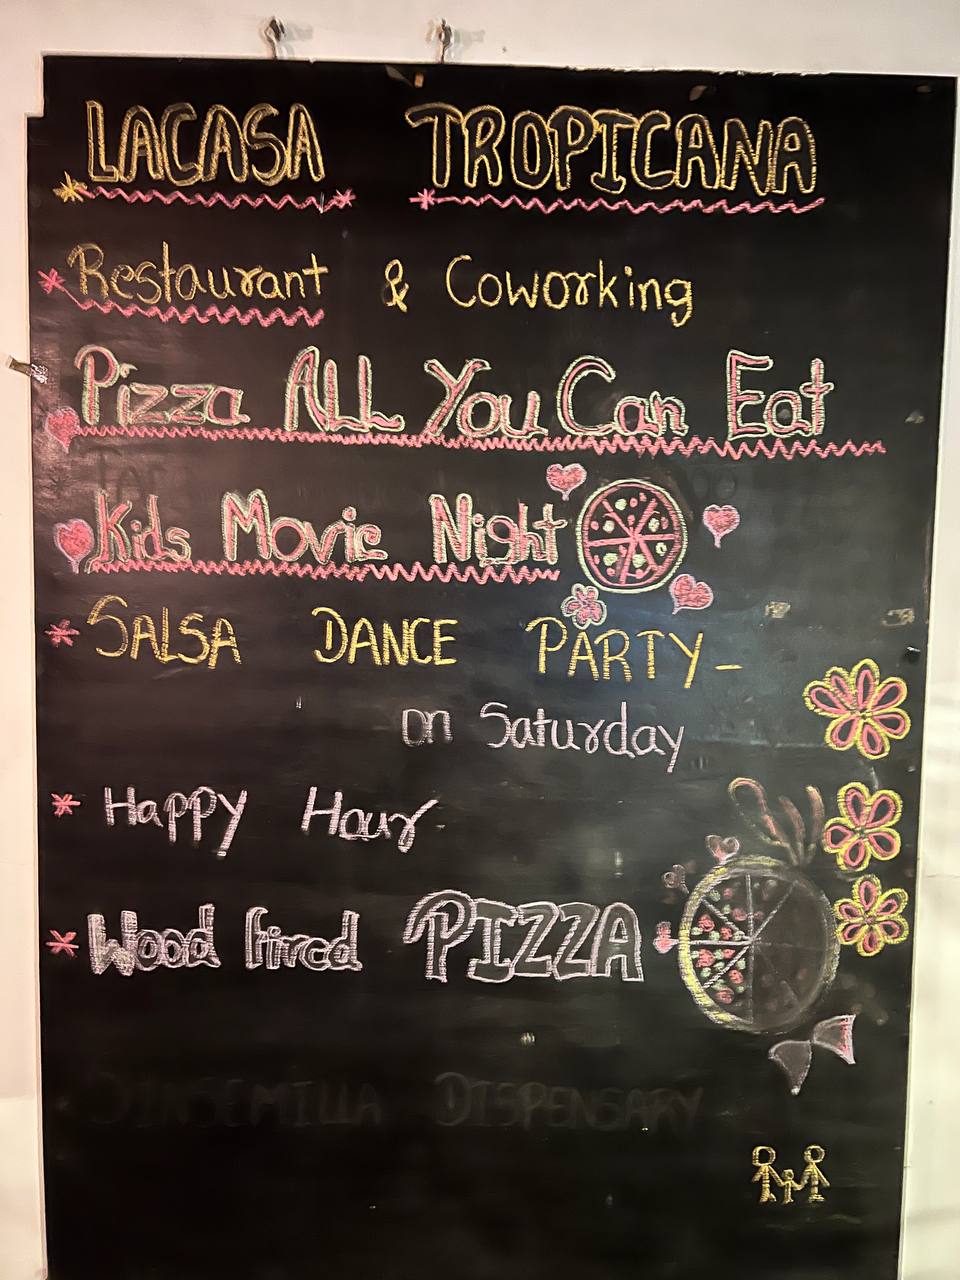 LACASA TROPICANA
Restaurant & Coworking
Pizza ALL You Can Eat
Kids Movie Night
SALSA DANCE PARTY-
on Saturday
Happy Hour
Wood fired PIZZA
SINSEMILLA DISPENSARY